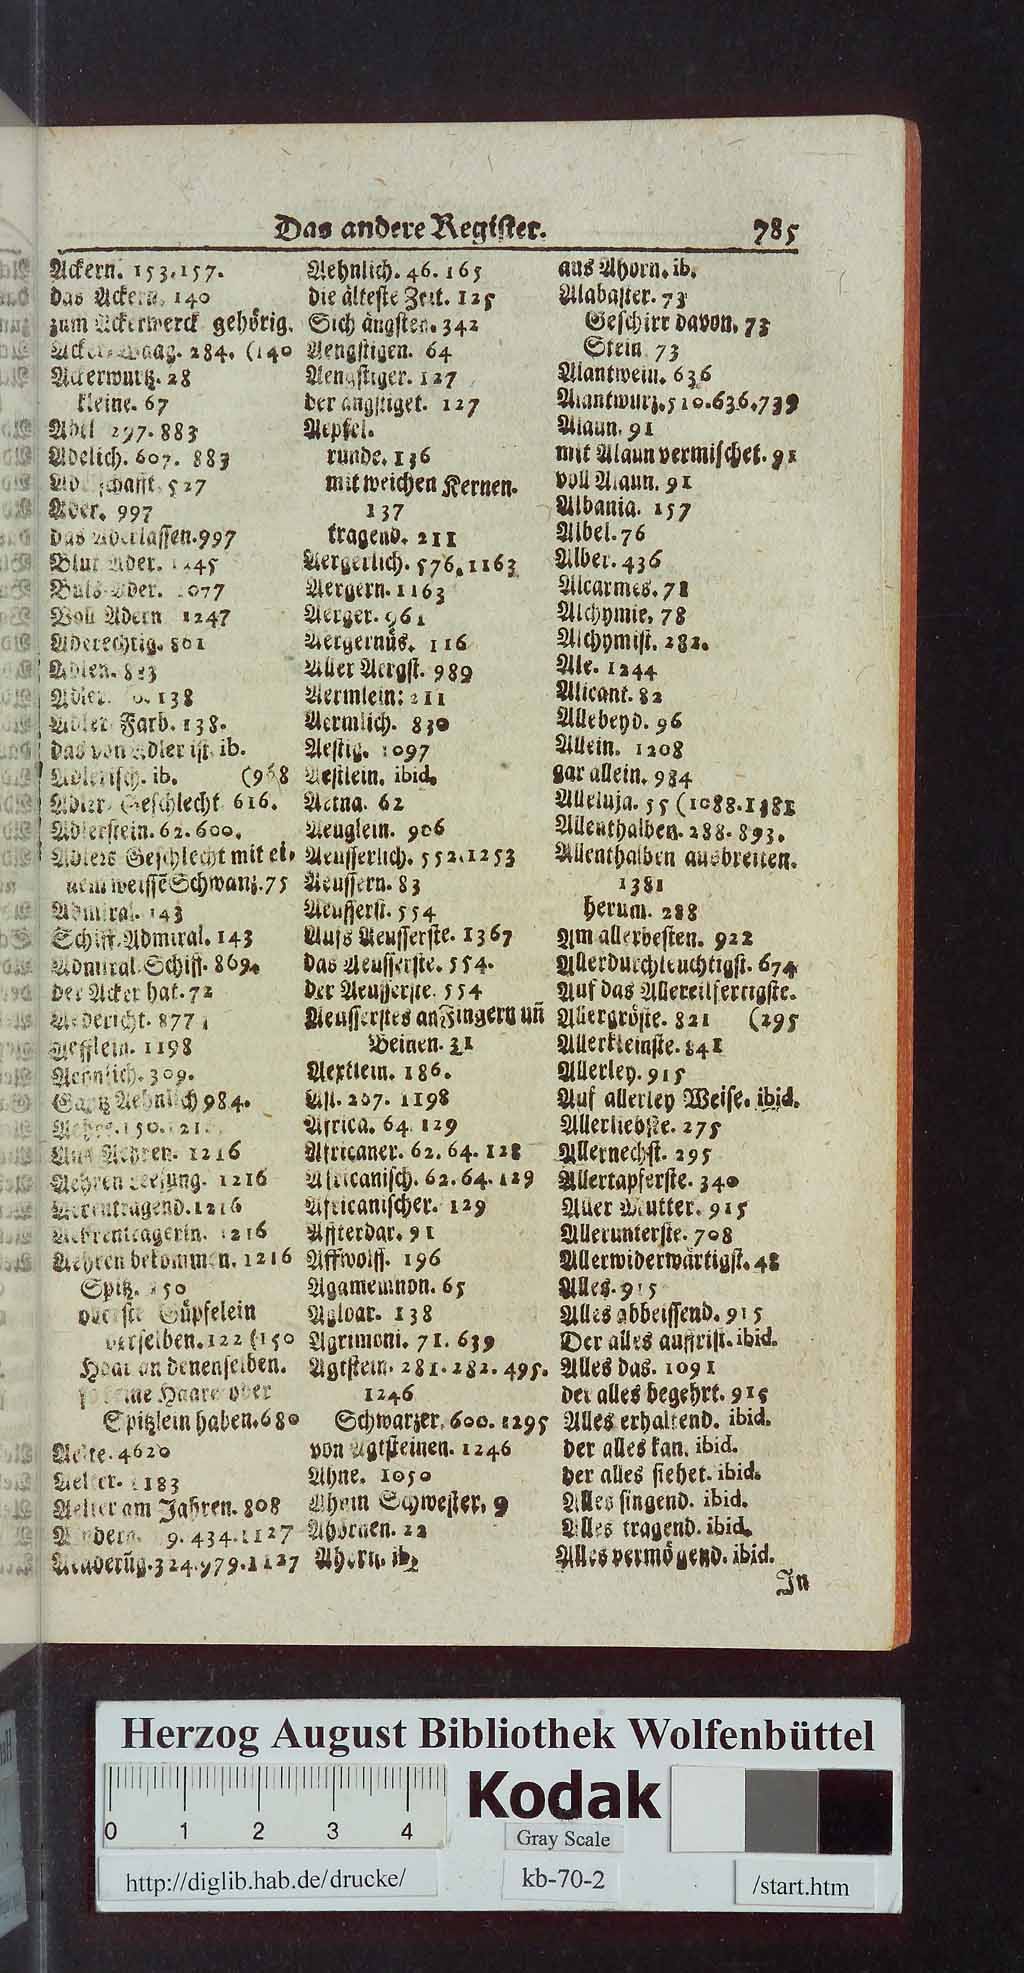 Das andere Register. 785
Ackern. 153.157.
das Ackern. 140
zum Ackerwerck gehörig.
284. (140
Ackerwurtz. 28
kleine. 67
Adel 297. 883
Adelich. 607. 883
527
Ader. 997
das Aderlassen. 997
Blut Ader. 1245
Puls Ader. 1077
Voll Adern 1247
Aderechtig. 801
Adlen. 883
Adler. 138
Adler Farb. 138.
das von Adler ist. ib.
Adlerisch. ib. (968
Adler Geschlecht 616.
Adlerstein. 62. 600.
Adlers Geschlecht mit ei-
nem weissē Schwanz. 75
Admiral. 143
Schiff Admiral. 143
Admiral Schiff. 869.
der Acker hat. 72
877
Aefflein. 1198
Aehnlich. 309.
Gantz Aehnlich 984.
150.
Aus Aehren. 1216
Aehren Lesung. 1216
Aerentragend. 1216
Aehrentragerin. 1216
Aehren bekommen. 1216
Spitz. 150
oberste Güpfelein
derselben. 122 (150
Haar an denenselben.
Haare oder
Spitzlein haben. 680
Aelte. 4620
Aelter. 1183
Aelter am Jahren. 808
434. 1127
Aenderūg. 324. 979. 1127
Aehnlich. 46. 165
die älteste Zeit. 125
Sich ängsten. 342
Aengstigen. 64
Aengstiger. 127
der ängstiget. 127
Aepfel.
runde. 136
mit weichen Kernen.
137
tragend. 211
Aergerlich. 576. 1163
Aergern. 1163
Aerger. 961
Aergernüs. 116
Aller Aergst. 989
Aermlein: 211
Aermlich. 830
Aestig. 1097
Aestlein. ibid.
Aetna. 62
Aeuglein. 906
Aeusserlich. 552. 1253
Aeussern. 83
Aeusserst. 554
Aufs Aeusserste. 1367
das Aeusserste. 554.
der Aeusserste. 554
Aeusserstes an Fingern uñ
Beinen. 31
Aextlein. 186.
Aff. 207. 1198
Africa. 64. 129
Africaner. 62. 64. 128
Africanisch. 62. 64. 129
Africanischer. 129
Affterdar. 91
Affwolff. 196
Agamemnon. 65
Agloar. 138
Agrimoni. 71. 639
Agtstein. 281. 282. 495.
1246
Schwarzer. 600. 1295
von Agtsteinen. 1246
Ahne. 1050
Ahnin Schwester. 9
Ahornen. 22
Ahorn. ib.
aus Ahorn. ib.
Alabaster. 73
Geschirr davon. 73
Stein 73
Alantwein. 636
Alantwurz. 510. 636. 739
Alaun. 91
mit Alaun vermischet. 91
voll Alaun. 91
Albania. 157
Albel. 76
Alber. 436
Alcarmes. 78
Alchymie. 78
Alchymist. 282.
Ale. 1244
Alicant. 82
Allebeyd. 96
Allein. 1208
gar allein. 984
Alleluja. 55 (1088. 1381
Allenthalben. 288. 893.
Allenthalben ausbreiten.
1381
herum. 288
Am allerbesten. 922
Allerdurchleuchtigst. 674
Auf das Allereilfertigste.
Allergröste. 821 (295
Allerkleinste. 841
Allerley. 915
Auf allerley Weise. ibid.
Allerliebste. 275
Allernechst. 295
Allertapferste. 340
Aller Mutter. 915
Allerunterste. 708
Allerwiderwärtigst. 48
Alles. 915
Alles abbeissend. 915
Der alles auffrist. ibid.
Alles das. 1091
der alles begehrt. 915
Alles erhaltend. ibid.
der alles kan. ibid.
der alles siehet. ibid.
Alles singend. ibid.
Alles tragend. ibid.
Alles vermögend. ibid.
In
Herzog August Bibliothek Wolfenbüttel
0 1 2 3 4
Kodak
Gray Scale
http://diglib.hab.de/drucke/
kb-70-2
/start.htm